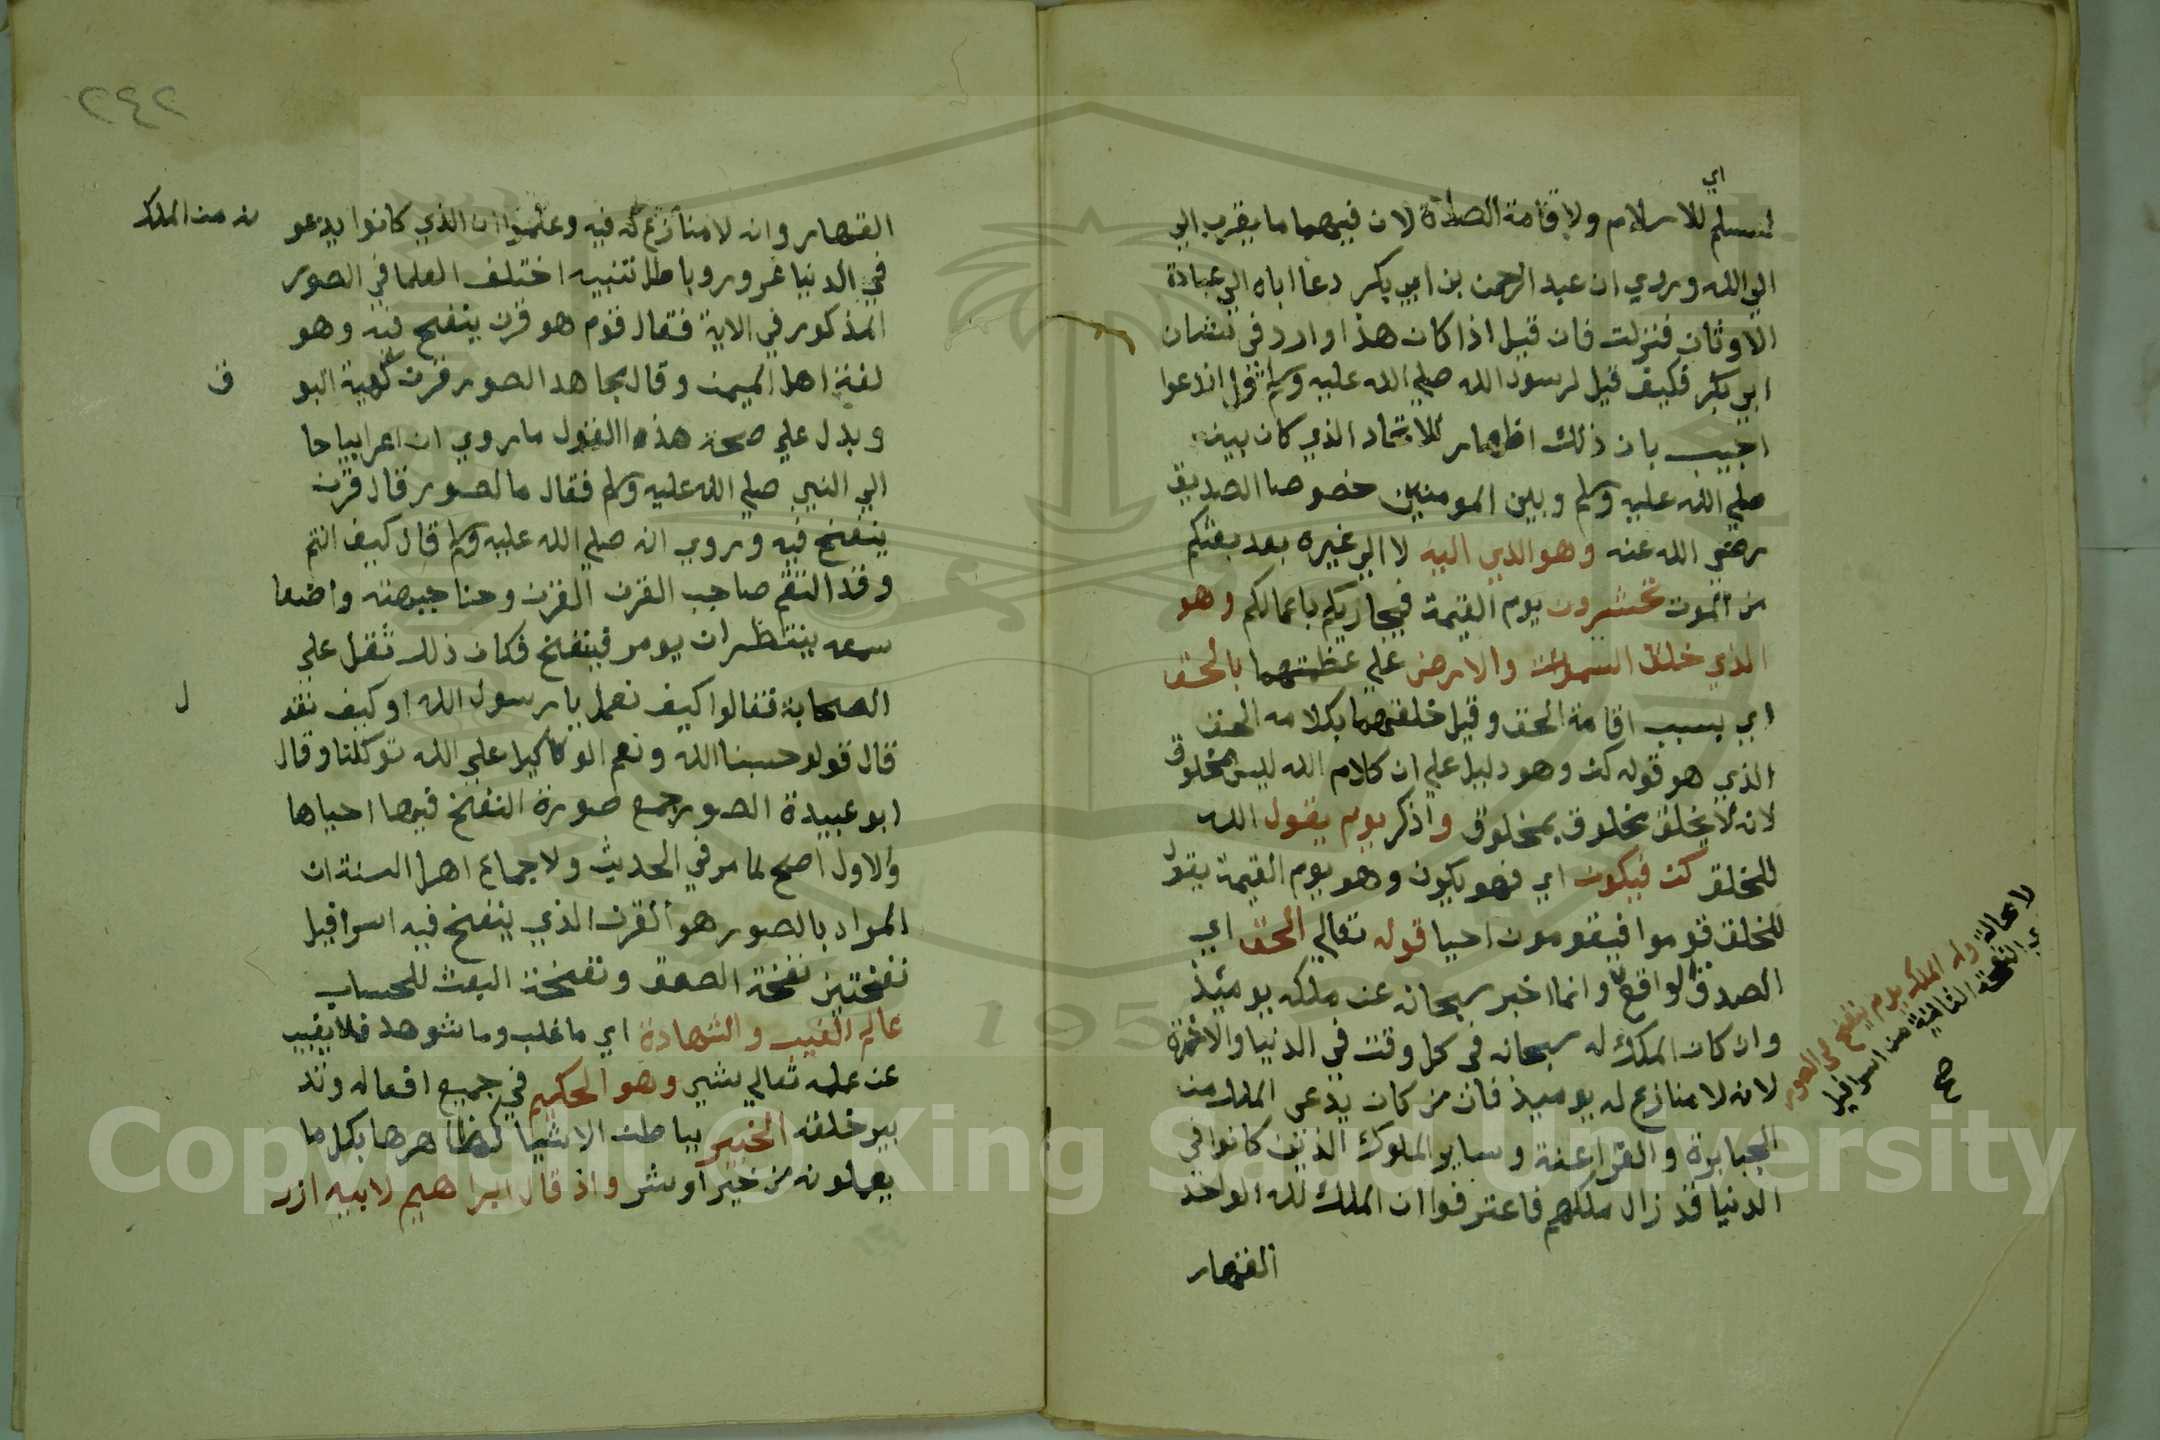 اي
لنسلم للاسلام ولاقامة الصلاة لان فيهما ما يقرب الي
الي الله وروي ان عبد الرحمن بن ابي بكر دعا اباه الي عبادة
الاوثان فنزلت فان قيل اذا كان هذا واردا في شان
ابي بكر فكيف قيل لرسول الله صلي الله عليه وسلم قل اندعوا
اجيب بان ذلك اظهار للاتحاد الذي كان بينه
صلي الله عليه وسلم وبين المومنين خصوصا الصديق
رضي الله عنه وهو الذي اليه لا الي غيره بعد بعثكم
من الموت تحشرون يوم القيمة فيجازيكم باعمالكم وهو
الذي خلق السموات والارض علي عظمتهما بالحق
اي بسبب اقامة الحق وقيل خلقهما بكلامه الحق
الذي هو قوله كن وهو دليل علي ان كلام الله ليس بمخلوق
لانه لا يخلق مخلوق بمخلوق واذكر يوم يقول الله
للخلق كن فيكون اي فهو يكون وهو يوم القيمة يقول
للخلق قوموا فيقومون احيا قوله تعالي الحق اي
الصدق الواقع وانما اخبر سبحانه عن ملكه يوميذ
وان كان الملك له سبحانه في كل وقت في الدنيا والاخرة
لانه لا منازع له يوميذ فان من كان يدعي الملك من
الجبابرة والفراعنة وساير الملوك الذين كانوا في
الدنيا قد زال ملكهم فاعترفوا ان الملك لله الواحد
القهار
لا محالة وله الملك يوم ينفخ في الصور
اي النفخة الثانية من اسرافيل
صح
٢٤٢
القهار وانه لا منازع له فيه وعلموا ان الذي كانوا يدعو
نه من الملك
في الدنيا غرور وباطل تنبيه اختلف العلما في الصور
المذكور في الاية فقال قوم هو قرن ينفخ فيه وهو
لغة اهل اليمن وقال مجاهد الصور قرن كهية البو
ق
ويدل علي صحة هذه القول ما روي ان اعرابيا جا
الي النبي صلي الله عليه وسلم فقال ما الصور قال قرن
ينفخ فيه وروي انه صلي الله عليه وسلم قال كيف انتم
وقد التقم صاحب القرن القرن وحنا جبهته واصغا
سمعه ينتظر ان يومر فينفخ فكان ذلك ثقل علي
الصحابة فقالوا كيف نعمل يا رسول الله او كيف نقو
ل
قال قولوا حسبنا الله ونعم الوكيل علي الله توكلنا وقال
ابو عبيدة الصور جمع صورة النفخ فيها احياها
والاول اصح لما مر في الحديث ولاجماع اهل السنة ان
المراد بالصور هو القرن الذي ينفخ فيه اسرافيل
نفختين نفخة الصعق ونفخة البعث للحساب
عالم الغيب والشهادة اي ما غاب وما شوهد فلا يغيب
عن علمه تعالي شي وهو الحكيم في جميع افعاله وتد
بير خلقه الخبير بباطن الاشيا كظاهرها بكل ما
يعملونه من خير او شر واذ قال ابراهيم لابيه ازر
Copyright © King Saud University
195